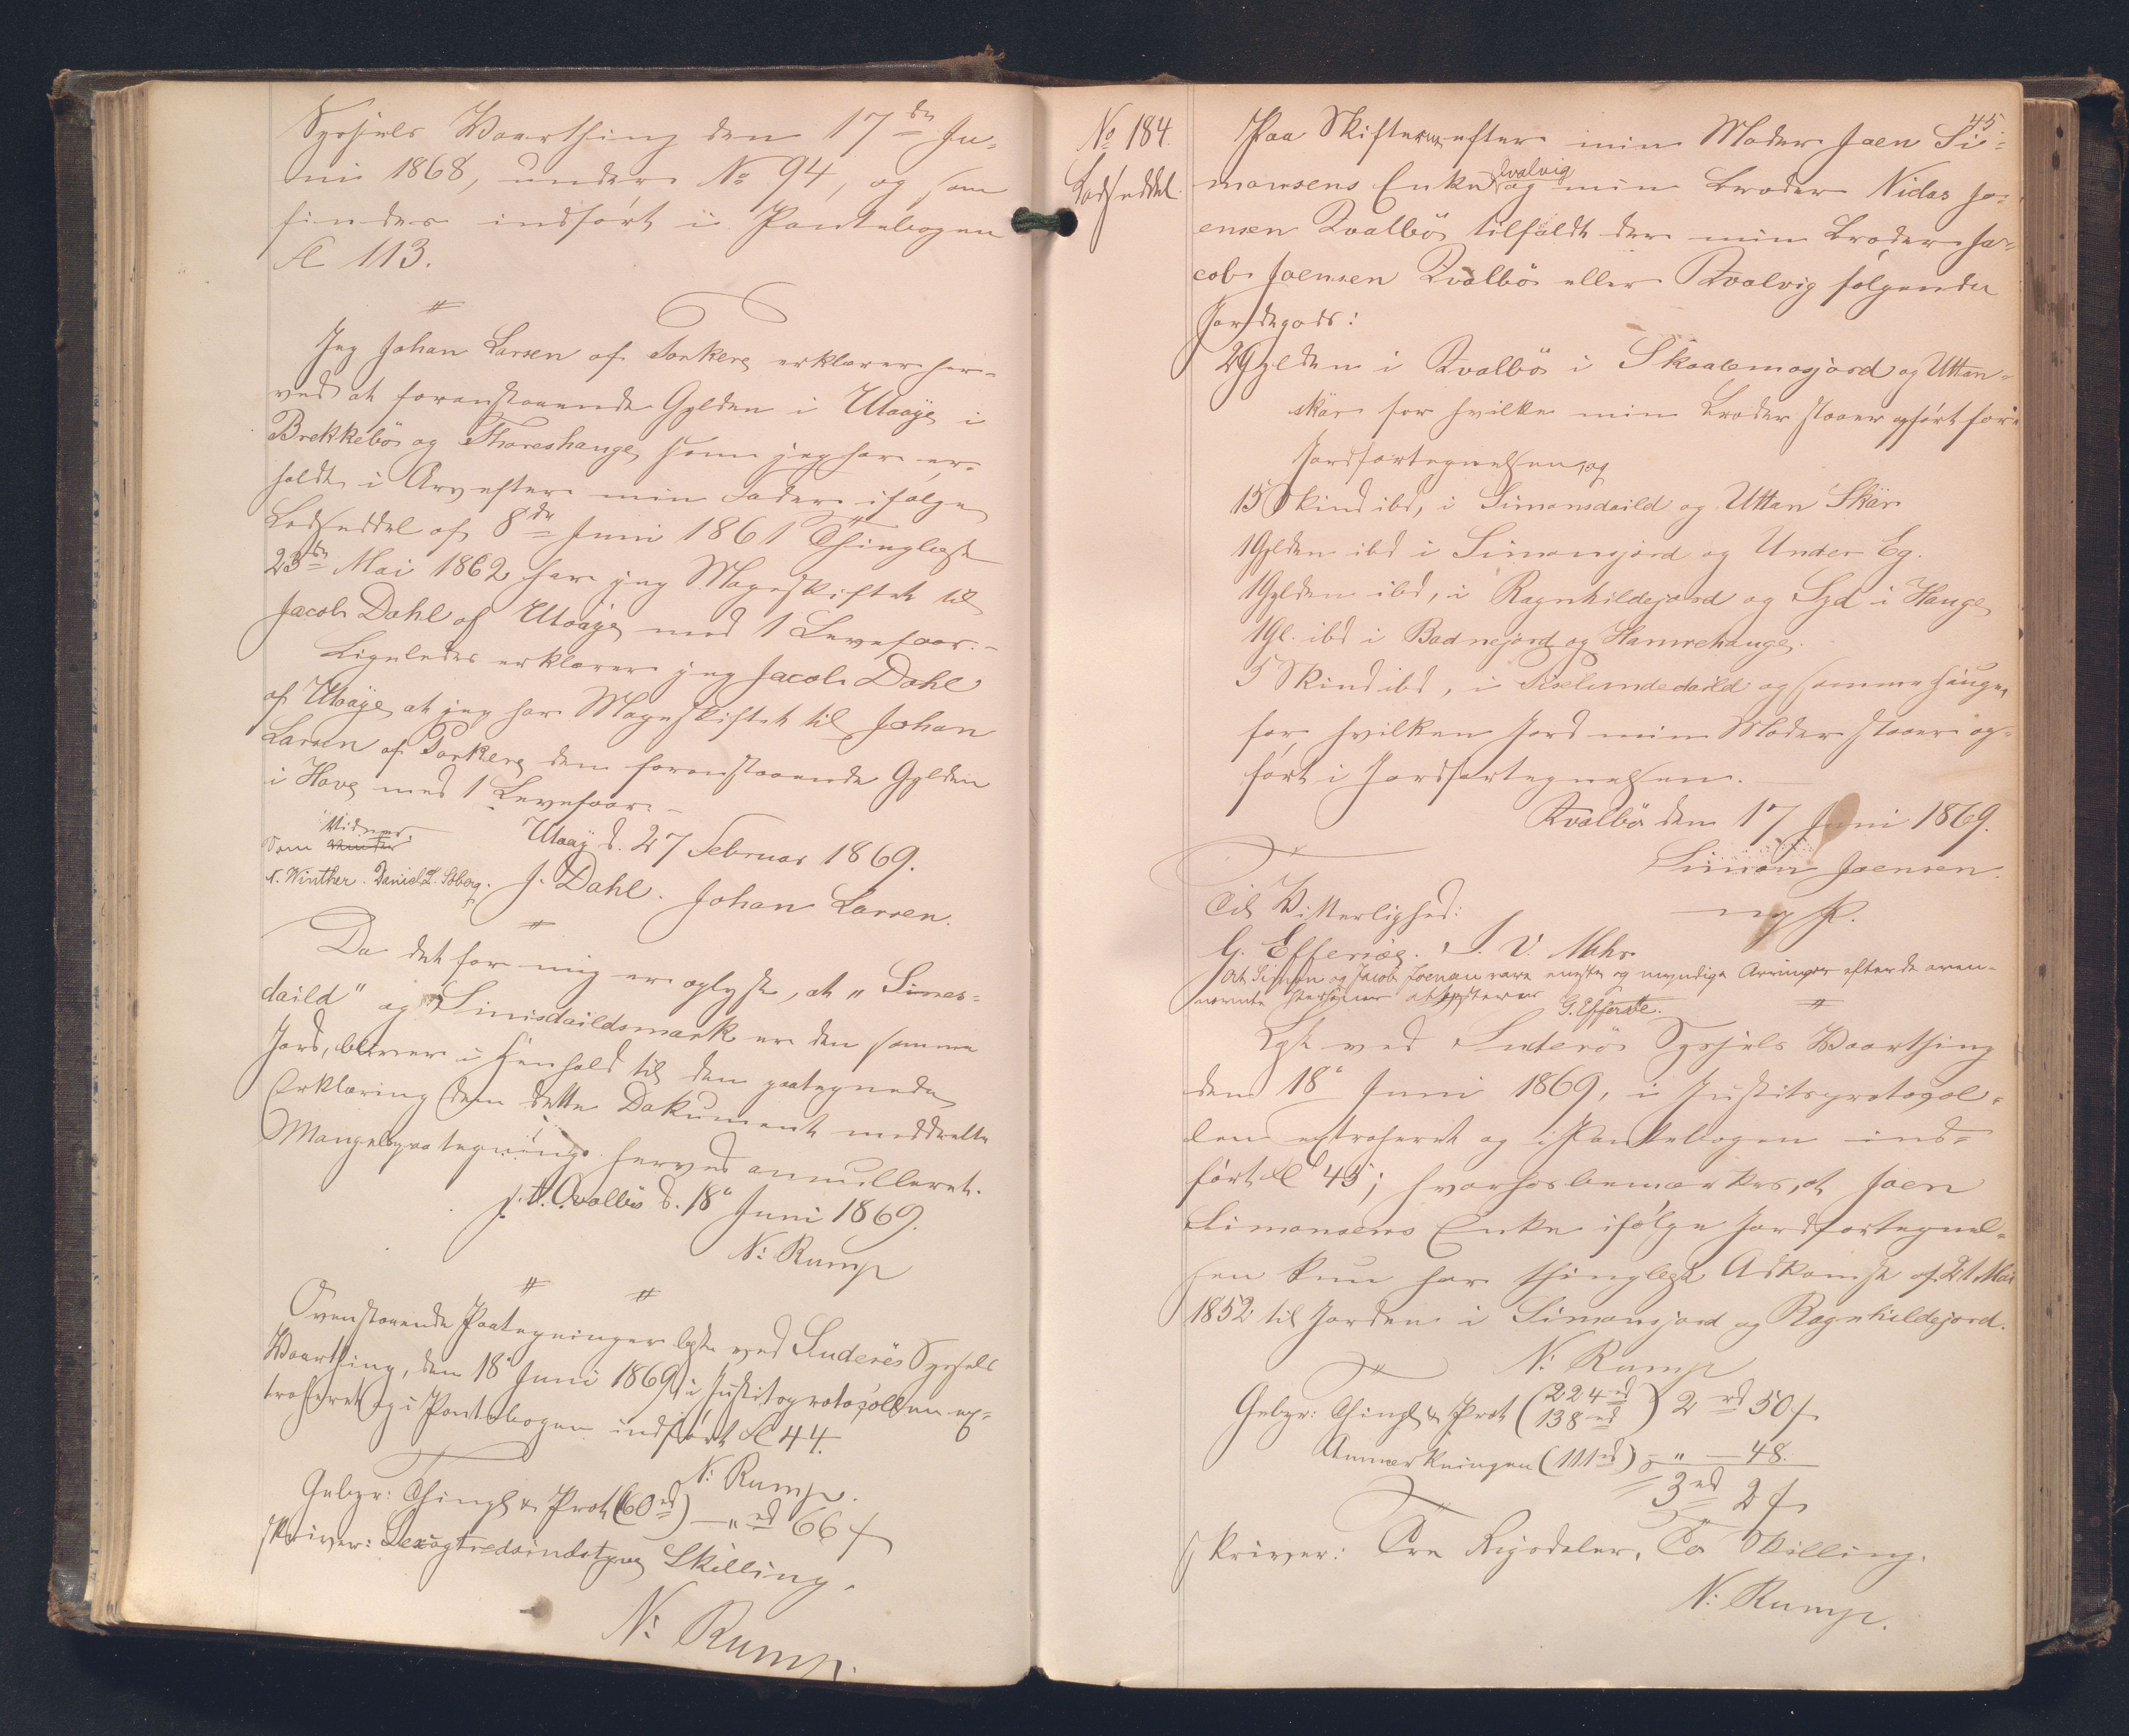 Syssels Vaarthing den 17de Ju-
ni 1868, under No 94, og som
findes indført i Pantebogen
Fl 113.
Jeg Johan Larsen af Porkere erklærer her-
ved at foranstaaende Gylden i Utvaaje i
Brekkebø og Thoreshauge, som jeg har er-
holdt i Arv efter min Fader ifølge
Lodseddel af 8de Juni 1861 Thinglæst
23de Mai 1862 har jeg Mageskiftet til
Jacob Dahl af Utvaaje med 1 Levefaar.-
Ligeledes erklærer jeg Jacob Dahl
af Utvaaje at jeg har Mageskiftet til Johan
Larsen af Porkere den foranstaaende Gylden
i Hove med 1 Levefaar.-
Utvaaj d. 27 Februar 1869.
Som Vidner.
N. Winther. Daniel L. Soberg. J. Dahl. Johan Larsen.
Da det for mig er oplyst, at "Simes-
daild" og "Simisdaildsmark er den samme
Jord, bliver i Henhold til den paategnede
Erklæring den dette Dokument meddeelte
Mangelspaategning herved annulleret.
p. t. Qvalbø d. 18de Juni 1869.
N: Rump
Ovenstaaende Paategninger læst ved Suderøes Syssels
Vaarthing, den 18 Juni 1869, i Justitsprotocollen ex-
traheret og i Pantebogen indført Fl 44.
N: Rump.
Gebyr: Thingl & Prot (60 rd) — " rd 66 ß
skriver: Sexogtredsindstyve Skilling.
N: Rump.
45
No 184.
Lodseddel.
Paa Skifterne efter min Moder Joen Si-
monsens Enke Qvalvig og min Broder Nidas Jo-
ensen Qvalbø tilfaldt der min Broder Ja-
cob Joensen Qvalbø eller Qvalvig følgende
Jordegods:
2 Gylden i Qvalbø i Skaalemosjord og Uttan-
skär for hvilke min Broder staaer opført for i
Jordfortegnelsen, og
15 Skind ibd, i Simonsdaild og Uttan Skär
1 Gylden ibd i Simonsjord og Under Eg.
1 Gylden ibd, i Ragnhildejord og Syd i Hauge
1 Gl. ibd i Badnejord og Hamrehauge.
5 Skind ibd, i daild og samme Hauge,
for hvilken Jord min Moder staaer op-
ført i Jordfortegnelsen.
Qvalbø den 17 Juni 1869.
Simon Joensen.
m f P.
Til Vitterlighed:
G. Effersøe. J. V. Mohr
At Simon og Jacob Joensen vare eneste og myndige Arvinger efter de oven-
nævnte Personer attesteres G. Effersøe.
Læst ved Suderø Syssels Vaarthing
den 18de Juni 1869, i Justitsprotocol-
len extraheret og i Pantebogen ind-
ført Fl 45; hvorhos bemærkes, at Joen
Simonsens Enke ifølge Jordfortegnel-
sen kun har thinglæst Adkomst af 21 Mai
1852 til Jorden i Simonsjord og Ragnhildejord.
N: Rump
Gebyr: Thingl & Prot (224 rd 138 rd) 2 rd 50 ß
Anmærkningen (111 rd) - " — 48.
3 rd 2 ß
skriver: Tre Rigsdaler, To Skilling.
N: Rump.